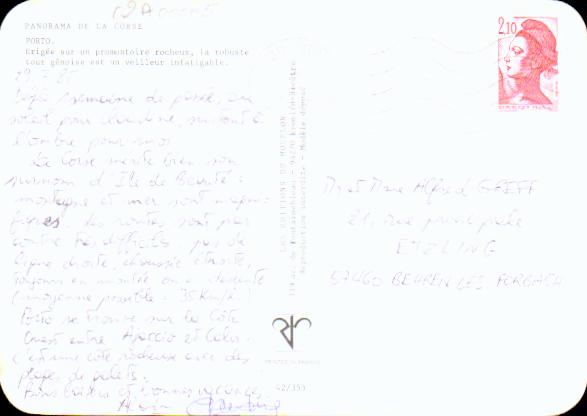 PANORAMA DE LA CORSE
PORTO.
Erigée sur un promontoire rocheux, la robuste
tour génoise est un veilleur infatigable.
Déjà 1 semaine de passée, du
soleil pour Claudine, surtout à
l'ombre pour moi.
La Corse mérite bien son
surnom d'Ile de Beauté :
montagne et mer sont magni-
fiques. Les routes sont par
contre très difficiles pas de
ligne droite, chaussée étroite,
toujours en montée ou en descente
(moyenne possible : 35 Km/h.)
Porto se trouve sur la Côte
Ouest entre Ajaccio et Calvi.
C'est une côte rocheuse avec des
plages de galets.
Bons baisers et bonnes vacances
LES EDITIONS DU MOUFLON
Reproduction interdite - Modèle déposé
2,10
M. et Mme Alfred GREFF
21, rue principale
ETZLING
57460 BEHREN LES FORBACH
42/353